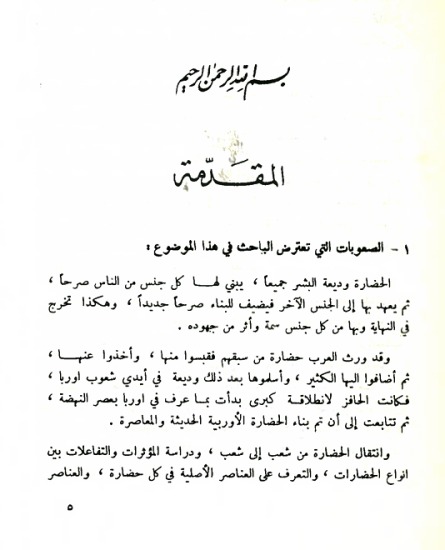 بسم الله الرحمن الرحيم
المقدّمة
١ - الصعوبات التي تعترض الباحث في هذا الموضوع :
الحضارة وديعة البشر جميعاً ، يبني لهـا كل جنس من الناس صرحاً ،
ثم يعهد بها إلى الجنس الآخر فيضيف للبناء صرحاً جديداً ، وهكذا تخرج
في النهاية وبها من كل جنس سمة وأثر من جهوده .
وقد ورث العرب حضارة من سبقهم فقبسوا منها ، وأخذوا عنهـا ،
ثم أضافوا اليها الكثير ، وأسلموها بعد ذلك وديعة في أيدي شعوب اوربا ،
فكانت الحافز لانطلاقة كبرى بدأت بمـا عرف في اوربا بعصر النهضة ،
ثم تتابعت إلى أن تم بناء الحضارة الأوربية الحديثة والمعاصرة .
وانتقال الحضارة من شعب إلى شعب ، ودراسة المؤثرات والتفاعلات بين
انواع الحضارات ، والتعرف على العناصر الأصلية في كل حضارة ، والعناصر
٥